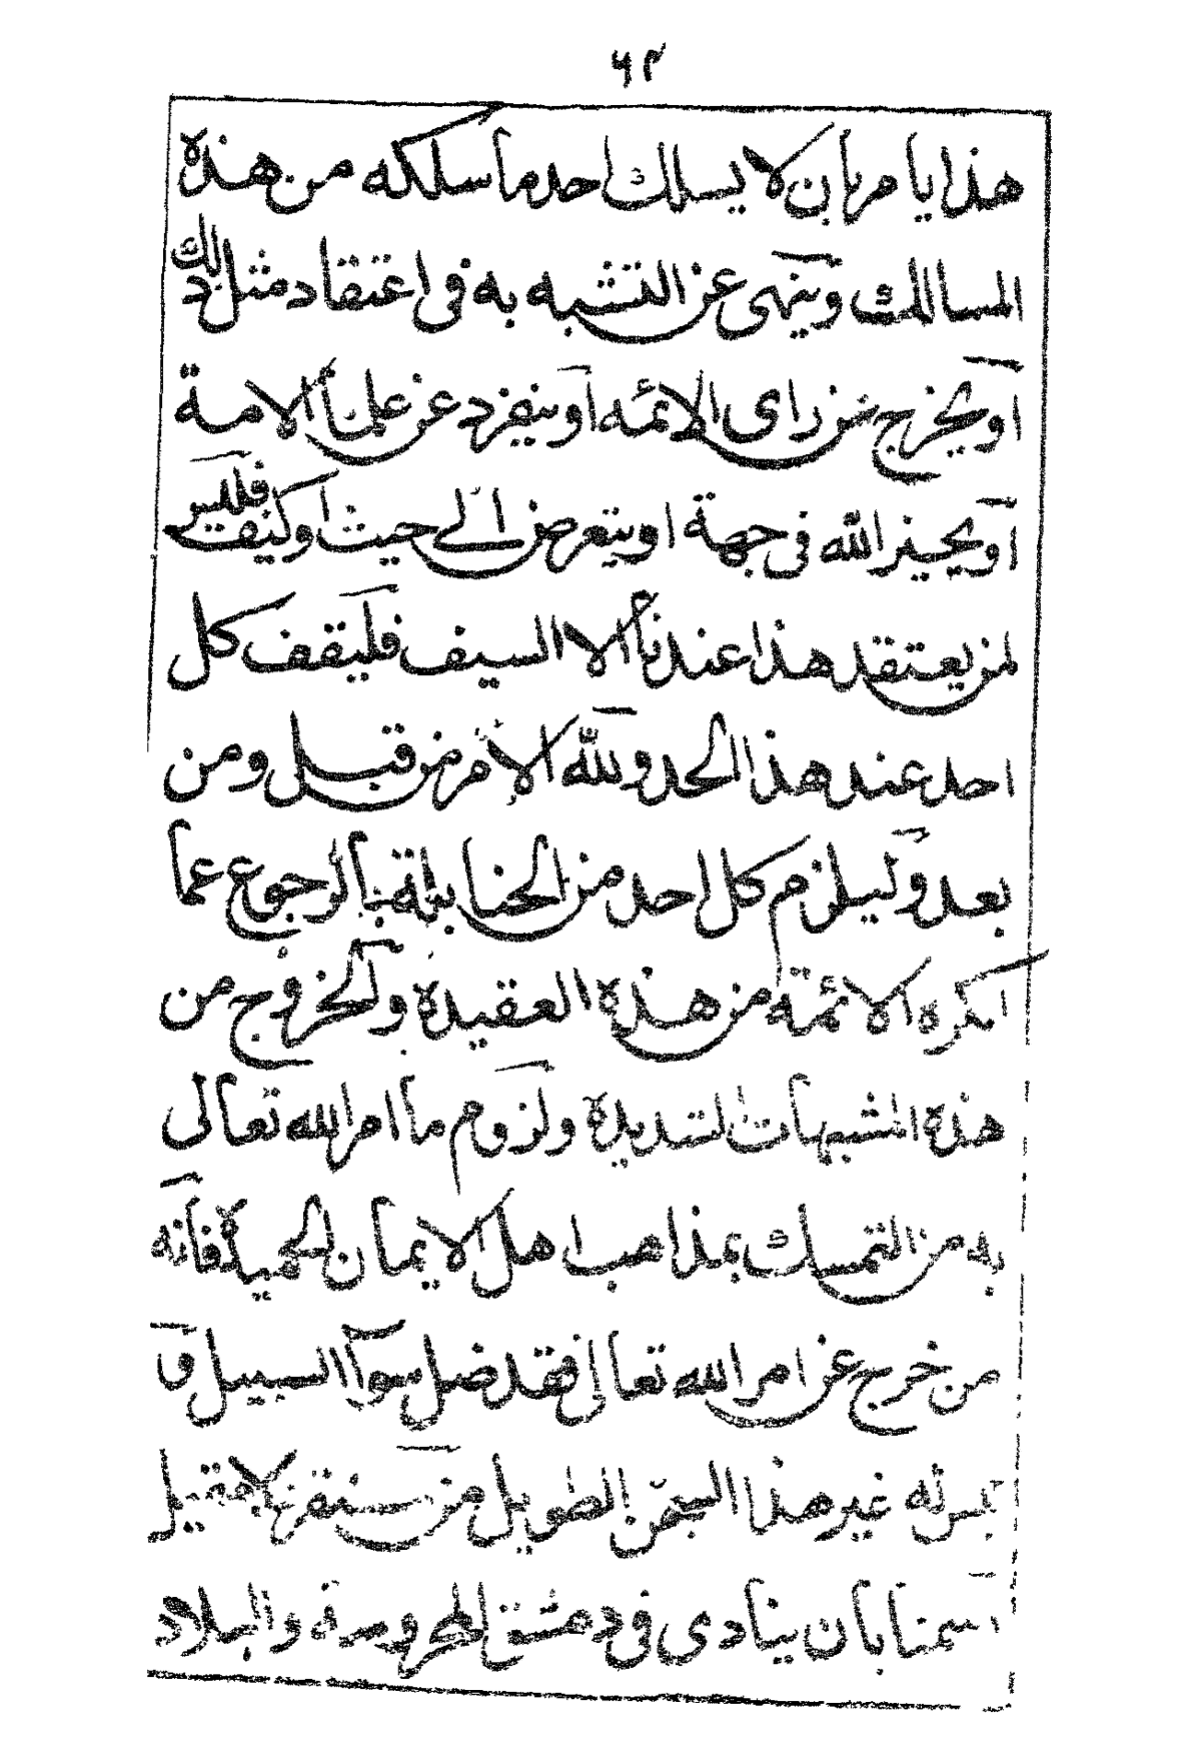 ٦٩
هذا يامر بان لا يسلك احد ما سلكه من هذه
المسالك وينهى عن التشبه به فى اعتقاد مثل ذلك
او يخرج عن راى الائمه او ينفرد عن علماً الامة
او يحيز الله فى جهة او يتعرض الى حيث او كيف فليس
لمن يعتقد هذا عندنا الا السيف فليقف كل
احد عند هذا الحد ولله الامر من قبل ومن
بعد وليلزم كل احد من الحنابلة بالرجوع عما
انكره الائمة من هذه العقيدة والخروج من
هذه المشبهات الشديدة ولزوم ما امر الله تعالى
به من التمسك بمذاهب اهل الايمان الحميدة فانه
من خرج عن امر الله تعالى فقد ضل سوآ السبيل و
ليس له غير هذا السجن الطويل من مستقر ولا مقيل
رسمنا بان ينادى فى دمشق المحروسة والبلاد